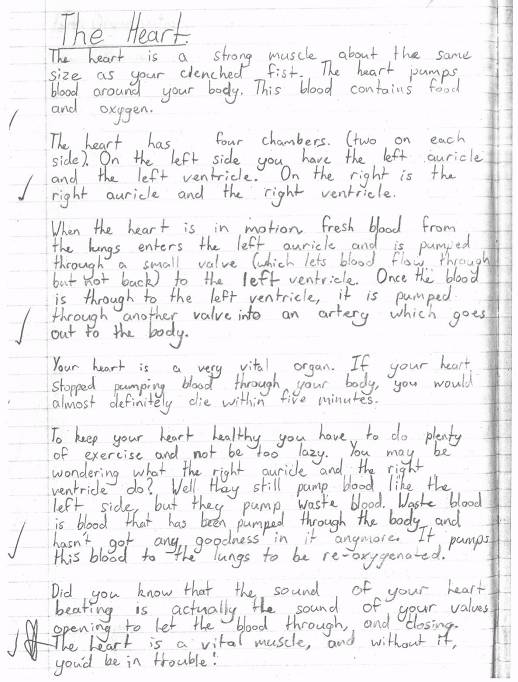 The Heart
The heart is a strong muscle about the same
size as your clenched fist. The heart pumps
blood around your body. This blood contains food
and oxygen.
The heart has four chambers. (two on each
side). On the left side you have the left auricle
and the left ventricle. On the right is the
right auricle and the right ventricle.
When the heart is in motion, fresh blood from
the lungs enters the left auricle and is pumped
through a small valve (which lets blood flow through
but not back) to the left ventricle. Once the blood
is through to the left ventricle, it is pumped
through another valve into an artery which goes
out to the body.
Your heart is a very vital organ. If your heart
stopped pumping blood through your body, you would
almost definitely die within five minutes.
To keep your heart healthy you have to do plenty
of exercise and not be too lazy. You may be
wondering what the right auricle and the right
ventricle do? Well they still pump blood like the
left side, but they pump waste blood. Waste blood
is blood that has been pumped through the body and
hasn't got any goodness in it anymore. It pumps
this blood to the lungs to be re-oxygenated.
Did you know that the sound of your heart
beating is actually the sound of your valves
opening to let the blood through, and closing.
The heart is a vital muscle, and without it,
you'd be in trouble!